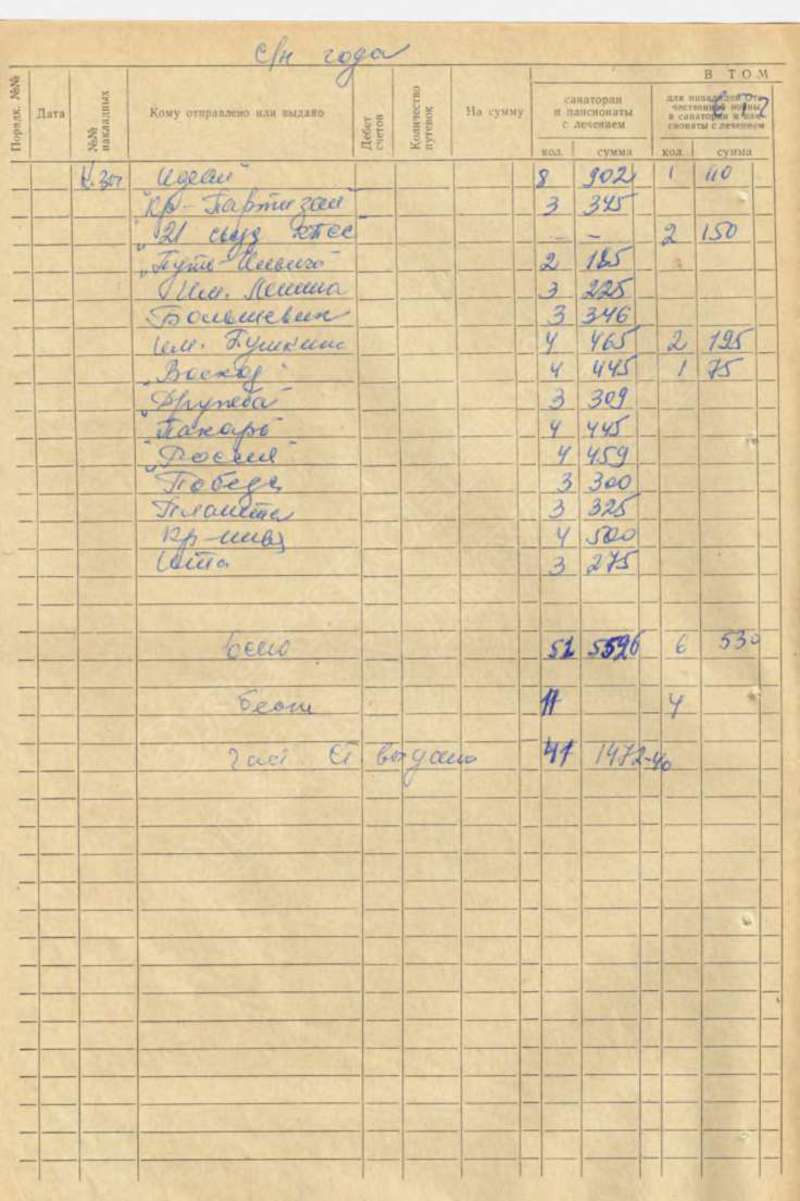 с/н года
В ТОМ
Порядк. №№ Дата №№ накладных Кому отправлено или выдано Дебет счетов Количество путевок На сумму
санатории и пансионаты с лечением
для инвалидов Отечественной войны в санатории и пансионаты с лечением
кол. сумма кол. сумма
Идеал" 8 902 1 110
"Кр-Партизан" 3 345
"21 съезд КПСС 2 150
"Путь 2 185
Им. Ленина 3 225
Большевик 3 346
им. Пушкина 4 465 2 195
"Восход" 4 445 1 75
"Дружба" 3 309
"Пахарь" 4 445
"Россия" 4 459
Победа 3 300
Планета 3 325
Кр-нива 4 500
3 275
Всего 51 5596 6 530
11 4
выдано 41 1472-40